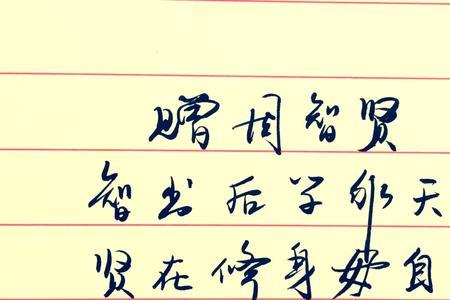 赠周智贤
智出后学承天
贤在修身妙自